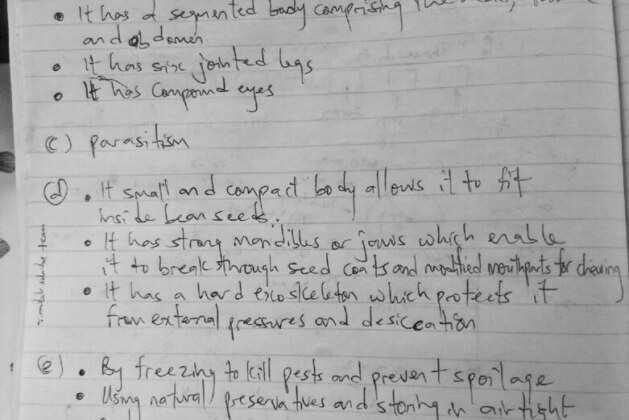 • It has a segmented body comprising the
and abdomen
• It has six jointed legs
• It has compound eyes
(c) parasitism
(d) • It small and compact body allows it to fit
inside bean seeds.
• It has strong mandibles or jaws which enable
it to break through seed coats and modified mouthparts for chewing
• It has a hard exoskeleton which protects it
from external pressures and desiccation
(e) • By freezing to kill pests and prevent spoilage
• Using natural preservatives and storing in airtight